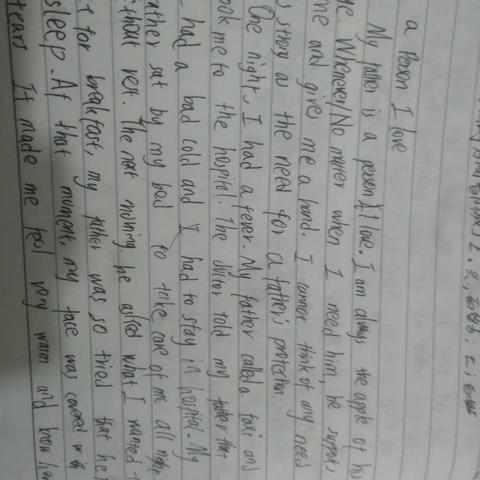 a person I love
My father is a person I love. I am always the apple of his
ye Whenever/No matter when I need him, he supports
me and gives me a hand. I cannot think of any need
s strong as the need for a father's protection.
One night, I had a fever. My father called a taxi and
ook me to the hospital. The doctor told my father that
I had a bad cold and I had to stay in hospital. My
ather sat by my bed to take care of me all night
ithout rest. The next morning, he asked what I wanted t
t for breakfast, my father was so tried that he
sleep. At that moment, my face was covered wi
tears It made me feel very warm and know how